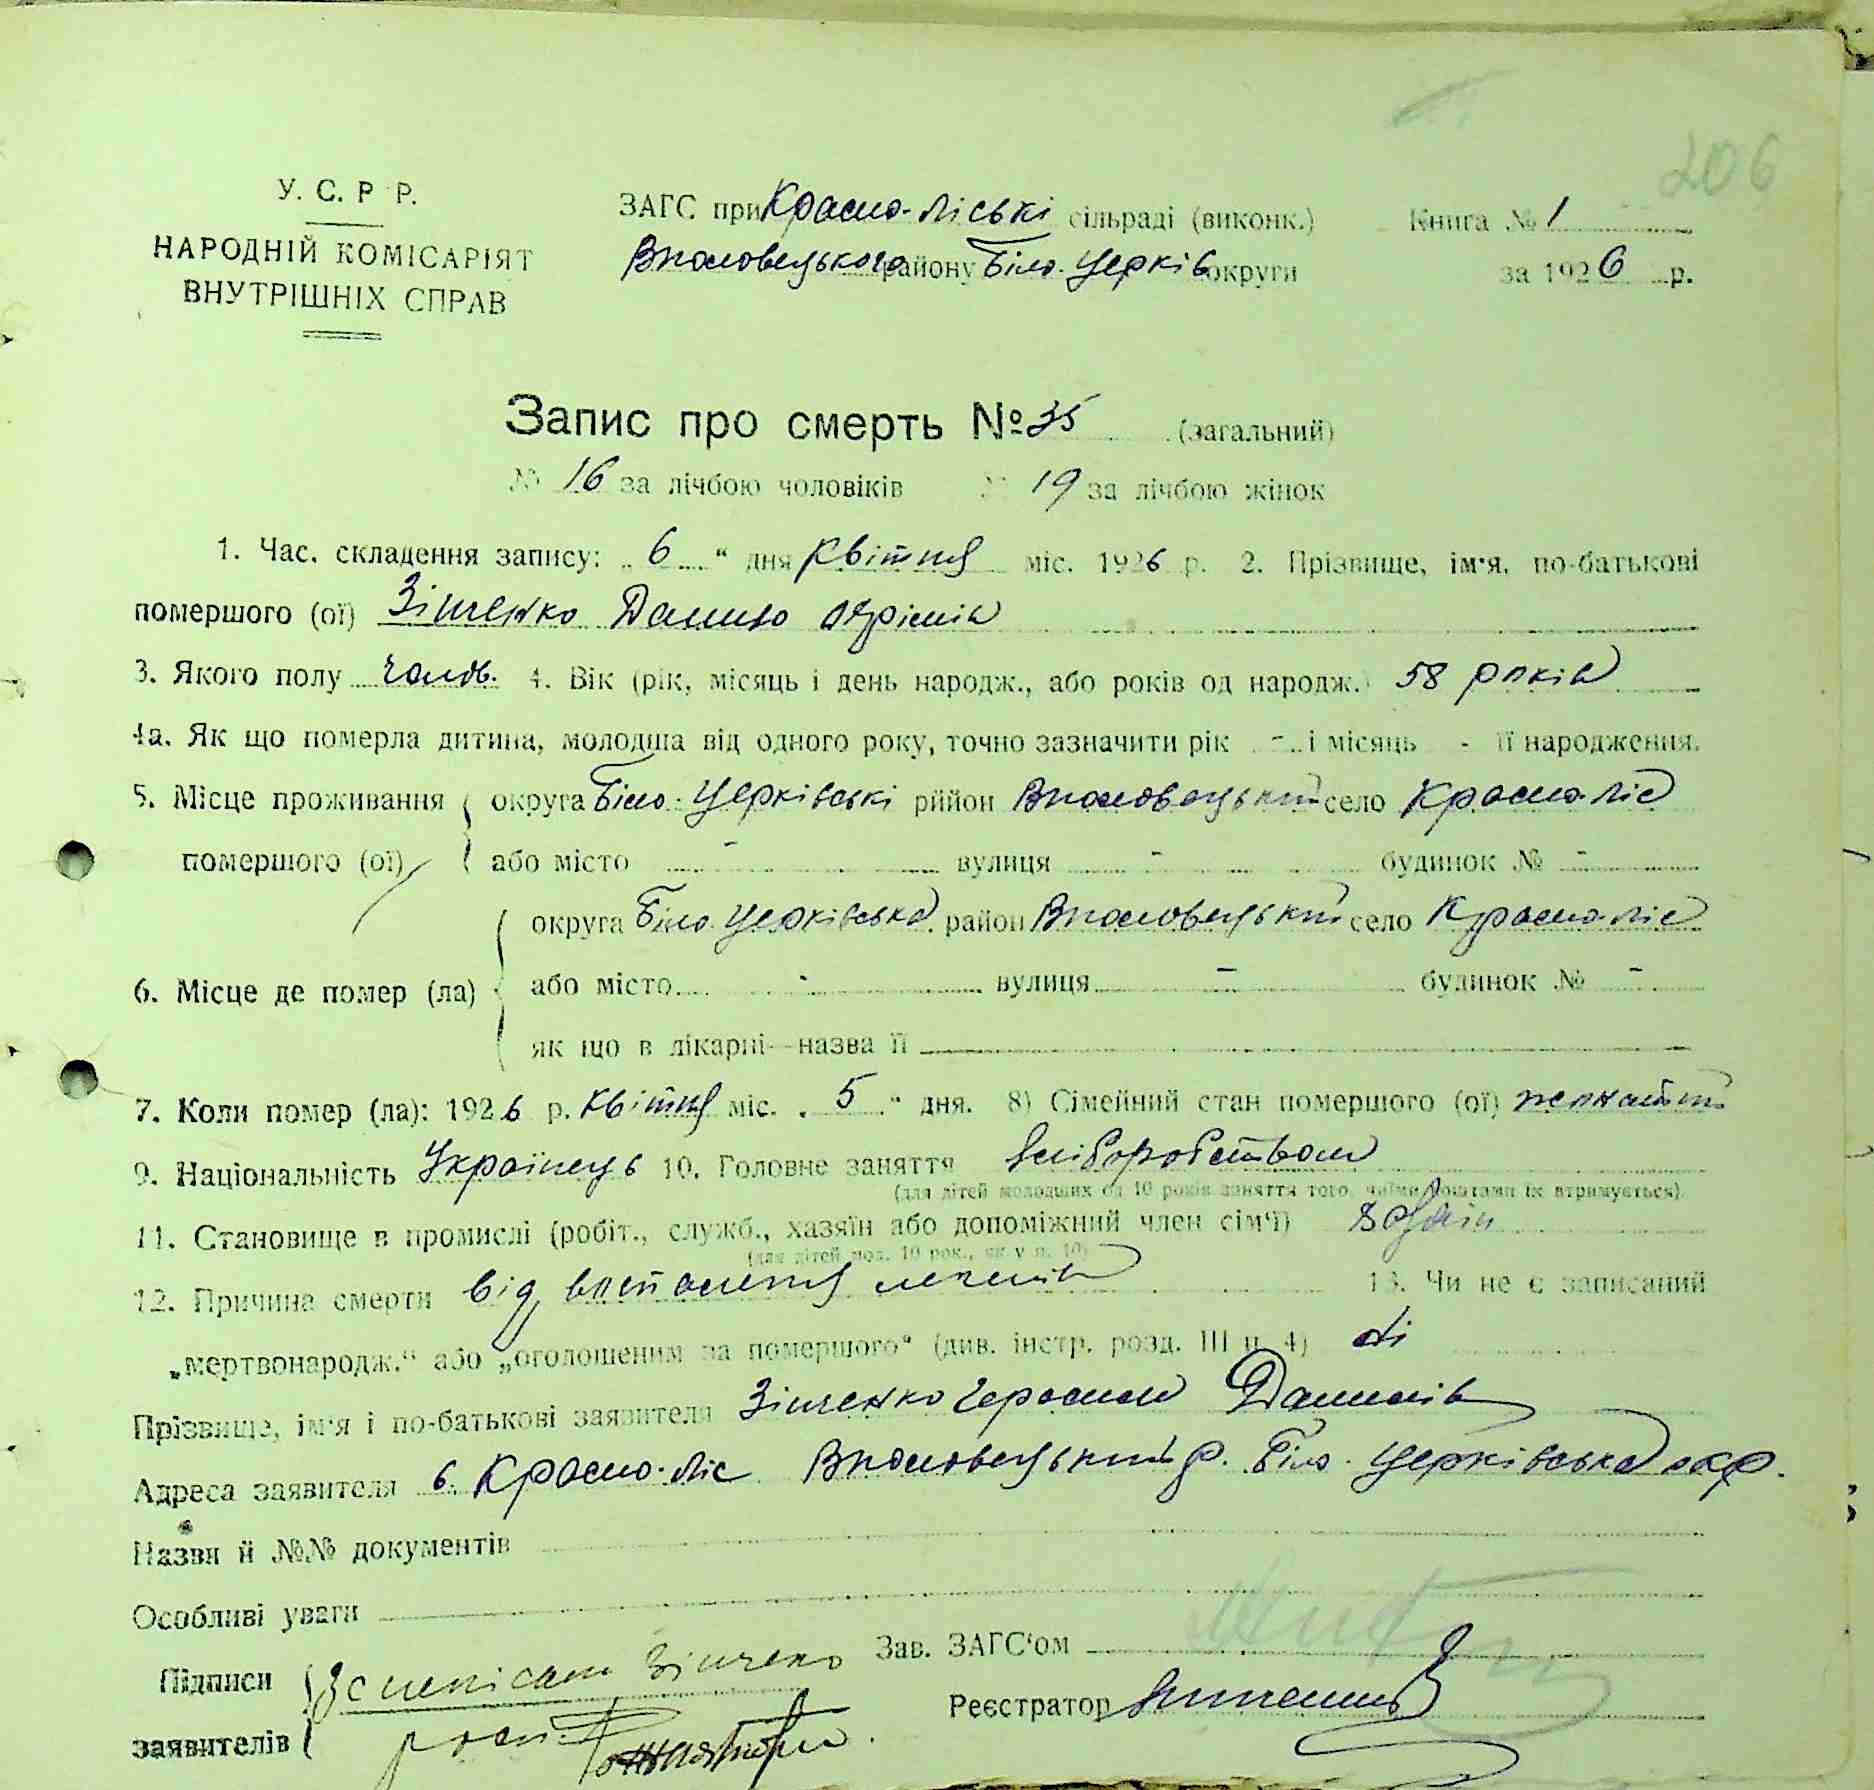 206
У. С. Р Р.
НАРОДНІЙ КОМІСАРІЯТ
ВНУТРІШНІХ СПРАВ
ЗАГС при Красно-Ліські сільраді (виконк.) Книга № 1
району Біло-Церків округи за 1926 р.
Запис про смерть № 35 (загальний)
№ 16 за лічбою чоловіків № 19 за лічбою жінок
1. Час. складення запису: „ 6 “ дня Квітня міс. 1926 р. 2. Прізвище, ім'я, по-батькові
помершого (ої) Зінченко Данило
3. Якого полу чолов. 4. Вік (рік, місяць і день народж., або років од народж.) 58 років
4а. Як що померла дитина, молодша від одного року, точно зазначити рік - і місяць - її народження.
5. Місце проживання округа Біло-Церківські рййон село Красно-Ліс
помершого (ої) або місто - вулиця - будинок № -
округа Біло-Церківська район село Красно-Ліс
6. Місце де помер (ла) або місто - вулиця - будинок № -
як що в лікарні—назва її
7. Коли помер (ла): 1926 р. Квітня міс. „ 5 “ дня. 8) Сімейний стан помершого (ої) жонатий
9. Національність Українець 10. Головне заняття Хліборобством
(для дітей молодших од 10 років заняття того, чиїми коштами їх втримується)
11. Становище в промислі (робіт., служб., хазяїн або допоміжний член сім'ї) хазяїн
(для дітей мол. 10 рок., як у п. 10)
12. Причина смерти від воспаленія легенів 13. Чи не є записаний
„мертвонародж.“ або „оголошеним за помершого“ (див. інстр. розд. III п. 4) Ні
Прізвище, ім'я і по-батькові заявителя Зінченко Герасим Данилів
Адреса заявителя с. Красно-Ліс р. Біло-Церківська окр.
Назви й №№ документів
Особливі уваги
Зав. ЗАГС'ом
Підписи Зінченко
Реєстратор
заявителів